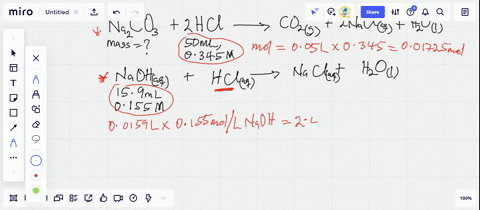 miro Untitled Share
Na2CO3 + 2HCl → CO2(g) + 2NaCl(g) + H2O(l)
mass = ? 50mL mol = 0.05L x 0.345 = 0.01725mol
0.345 M
* NaOH(aq) + HCl(aq) → NaCl(aq) + H2O(l)
15.9mL
0.155 M
0.0159L x 0.155mol/L NaOH = 2.